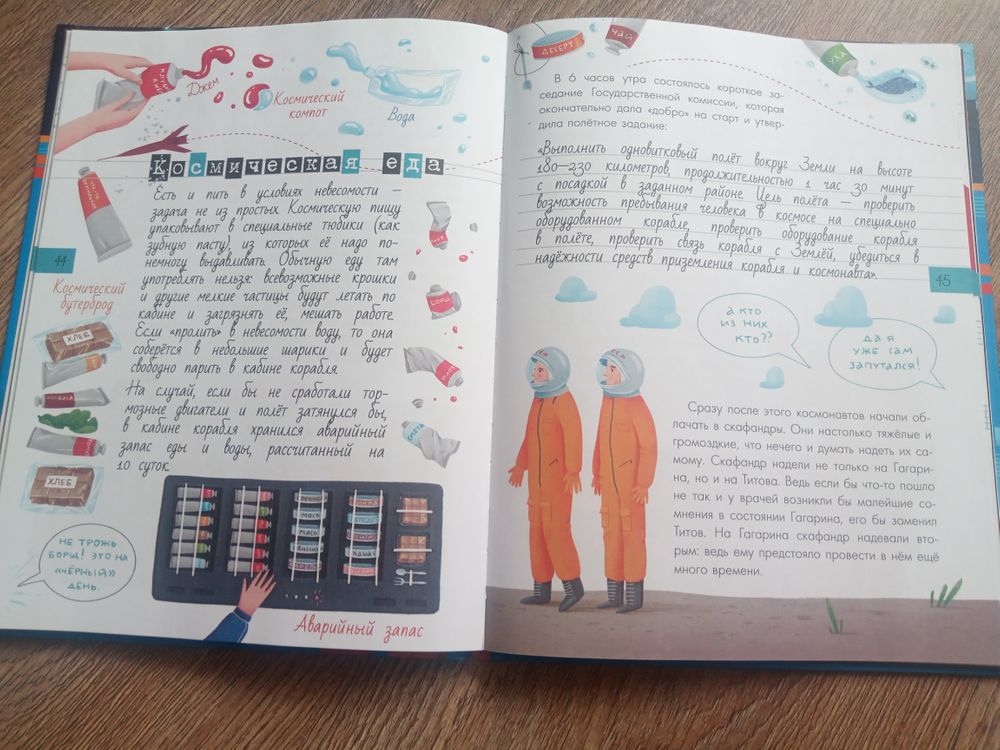 Джем
Космический
компот
Вода
Космическая еда
Есть и пить в условиях невесомости —
задача не из простых. Космическую пищу
упаковывают в специальные тюбики (как
зубную пасту), из которых её надо по-
немногу выдавливать. Обычную еду там
употреблять нельзя: всевозможные крошки
и другие мелкие частицы будут летать по
кабине и загрязнять её, мешать работе.
Если «пролить» в невесомости воду, то она
соберётся в небольшие шарики и будет
свободно парить в кабине корабля.
На случай, если бы не сработали тор-
мозные двигатели и полёт затянулся бы,
в кабине корабля хранился аварийный
запас еды и воды, рассчитанный на
10 суток.
44
Космический
бутерброд
ХЛЕБ
ХЛЕБ
БОРЩ
НЕ ТРОЖЬ
БОРЩ! ЭТО НА
«ЧЁРНЫЙ»
ДЕНЬ.
МЯСО
МЯСО
Аварийный запас
ДЕСЕРТ
ЧАЙ
УХА
В 6 часов утра состоялось короткое за-
седание Государственной комиссии, которая
окончательно дала «добро» на старт и утвер-
дила полётное задание:
«Выполнить одновитковый полёт вокруг Земли на высоте
180—230 километров, продолжительностью 1 час 30 минут
с посадкой в заданном районе. Цель полёта — проверить
возможность пребывания человека в космосе на специально
оборудованном корабле, проверить оборудование корабля
в полёте, проверить связь корабля с Землёй, убедиться в
надёжности средств приземления корабля и космонавта».
45
А КТО
ИЗ НИХ
КТО??
ДА Я
УЖЕ САМ
ЗАПУТАЛСЯ!
Сразу после этого космонавтов начали об-
лачать в скафандры. Они настолько тяжёлые и
громоздкие, что нечего и думать надеть их са-
мому. Скафандр надели не только на Гагари-
на, но и на Титова. Ведь если бы что-то пошло
не так и у врачей возникли бы малейшие со-
мнения в состоянии Гагарина, его бы заменил
Титов. На Гагарина скафандр надевали вто-
рым: ведь ему предстояло провести в нём ещё
много времени.